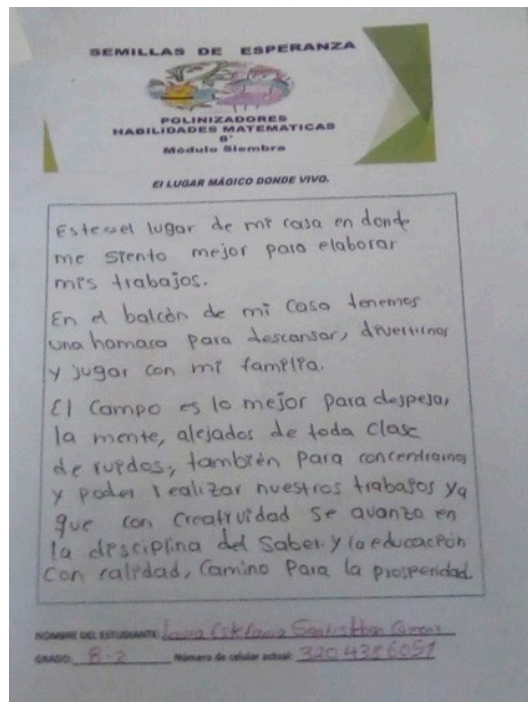 SEMILLAS DE ESPERANZA
POLINIZADORES
HABILIDADES MATEMATICAS
8°
Módulo Siembra
El LUGAR MÁGICO DONDE VIVO.
Este es el lugar de mi casa en donde
me siento mejor para elaborar
mis trabajos.
En el balcón de mi casa tenemos
una hamaca para descansar, divertirnos
y jugar con mi familia.
El campo es lo mejor para despejar
la mente, alejados de toda clase
de ruidos, también para concentrarnos
y poder realizar nuestros trabajos ya
que con creatividad se avanza en
la disciplina del saber y la educación
con calidad, camino para la prosperidad.
NOMBRE DEL ESTUDIANTE: Laura
GRADO: 8-2 Número de celular actual: 3204386051